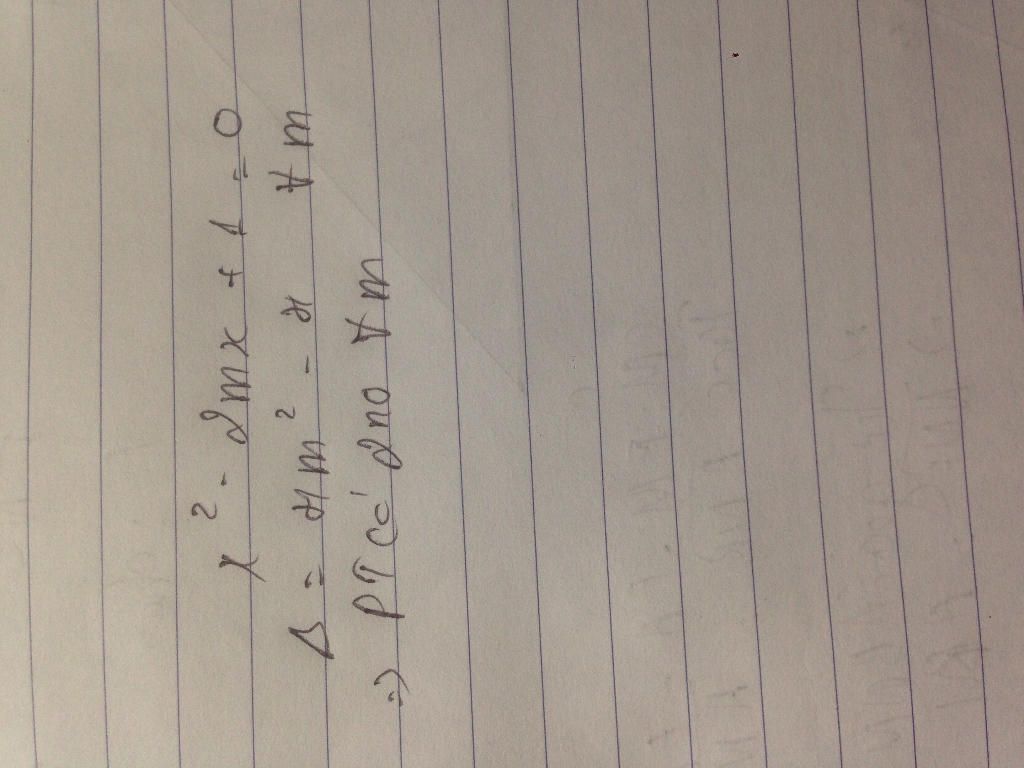 x² - 2mx + 1 = 0
Δ = 4m² - 4 ∀ m
=) PT có 2no ∀ m